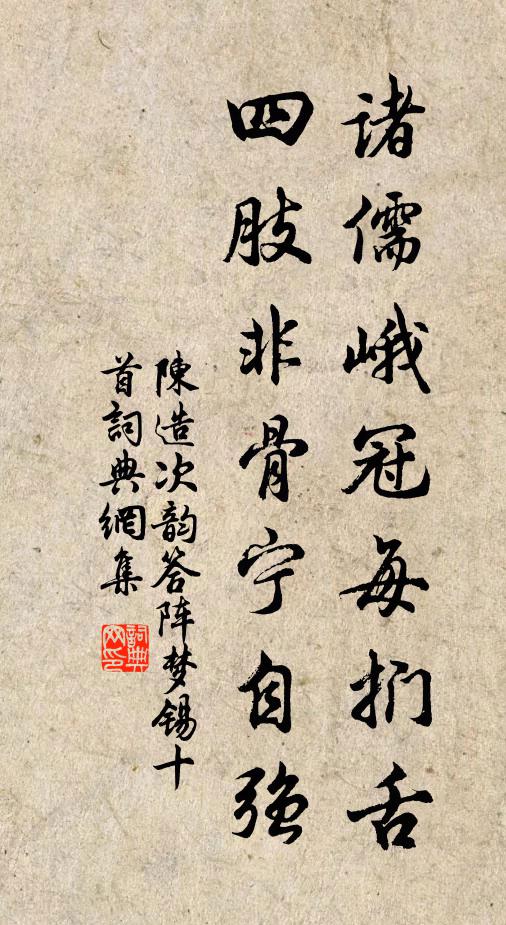 诸儒峨冠每扪舌
四肢非骨宁自强
陳造次韵答阵梦锡十
首詞典網集
詞典網印